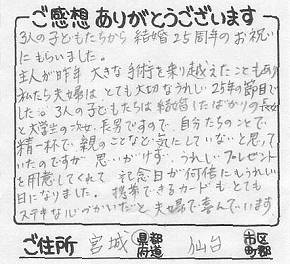 ご感想ありがとうございます
3人の子どもたちから 結婚25周年のお祝い
にもらいました。
主人が昨年 大きな手術を乗り越えたこともあり
私たち夫婦は とても大切なうれしい25年の節目で
した。3人の子どもたちは結婚したばかりの長女
と大学生の次女、長男ですので、自分たちのことで
精一杯で 親のことなど気にしていないと思って
いたのですが 思いがけず、うれしいプレゼント
を用意してくれて 記念日が何倍にもうれしい
日になりました。 携帯できるカードも とても
ステキな心づかいだと 夫婦で喜んでいます
ご住所 宮城 都道府県 仙台 市区町郡